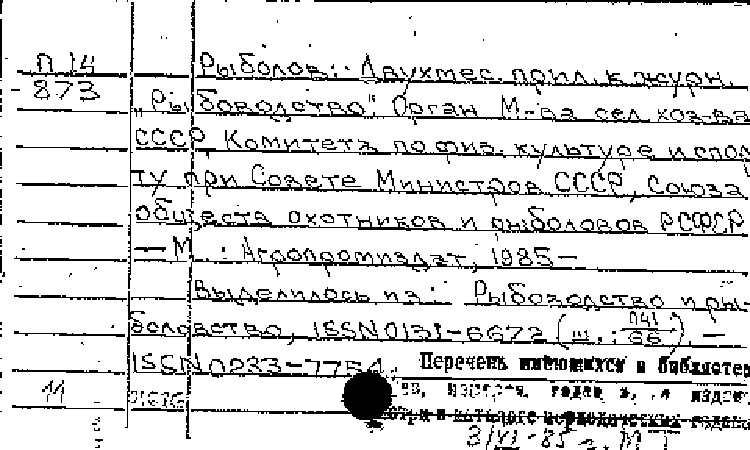 П 14
873
Рыболов: Двухмес. прил. к журн.
"Рыбоводство". Орган М-ва сел. хоз-ва
СССР, Комитета по физ. культуре и спор
ту при Совете Министров СССР, Союза
обществ охотников и рыболовов РСФСР
— М. : Агропромиздат, 1985—
Выделилось из: Рыбоводство и ры-
боловство, ISSN 0131-6672 (ш.: П41/66). —
ISSN 0233-7754.
Перечень имеющихся в библиотек
11
3/VI-85 г. МТ